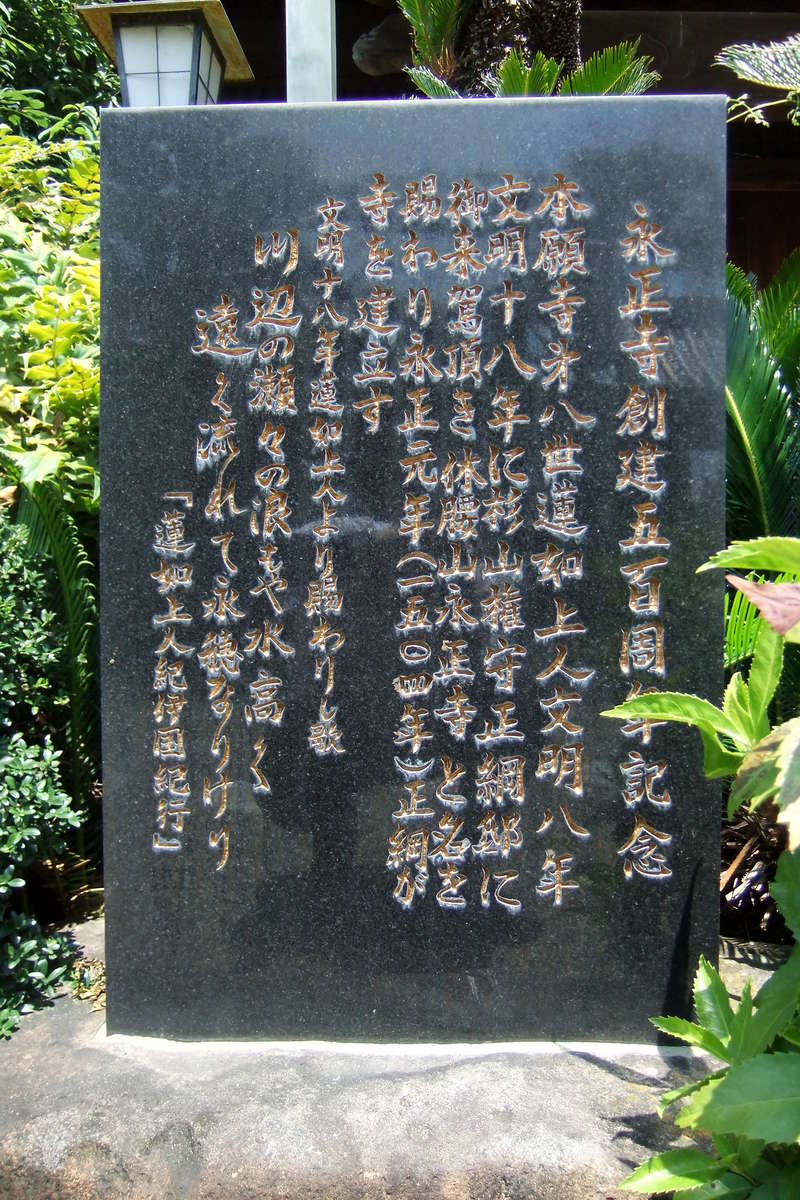 永正寺創建五百周年記念
本願寺㐧八世蓮如上人文明八年
文明十八年に杉山権守正綱邸に
御来駕頂き休腰山永正寺と名を
賜わり永正元年(一五〇四年)正綱が
寺を建立す
文明十八年蓮如上人より賜わりし歌
川辺の瀬々の浪もや水高く
遠く流れて永穂なりけり
「蓮如上人紀伊国紀行」